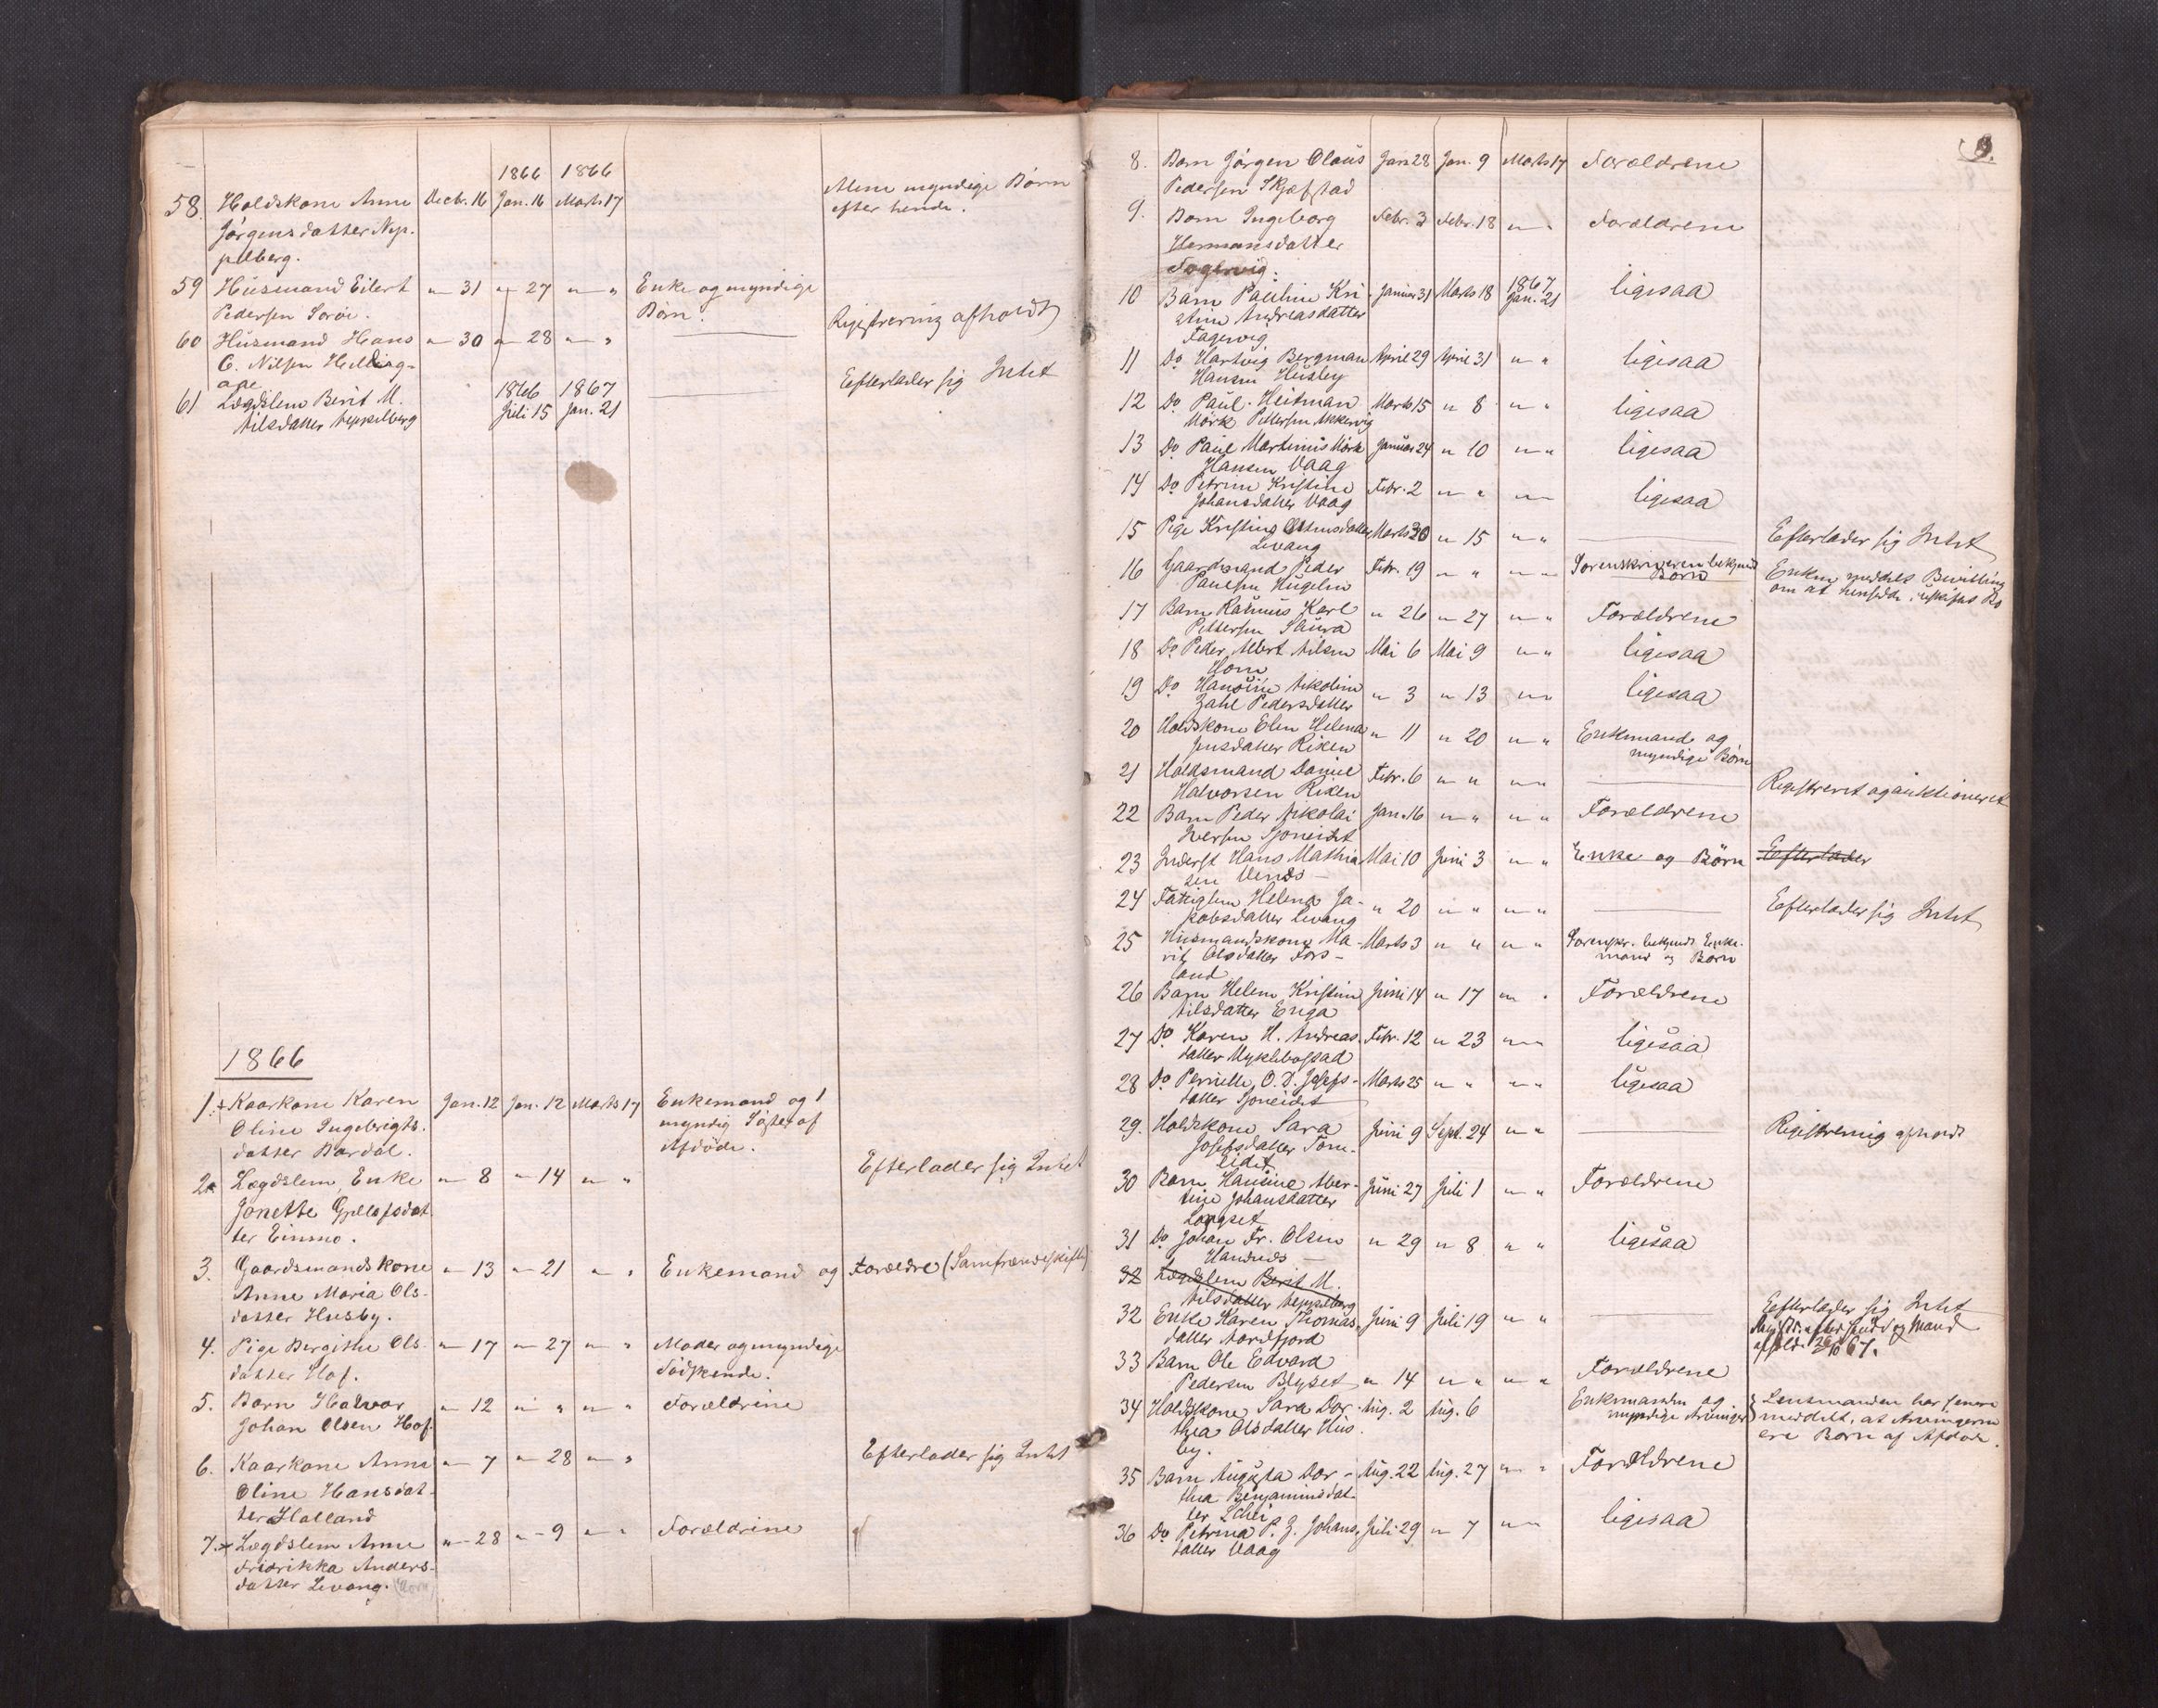 1866 1866
58. Holdskone Anne Decbr. 16 Jan. 16 Marts 17 Alene myndige Børn
Jørgensdatter Nep- efter hende.
pelberg.
59 Husmand Eilert " 31 " 27 " " Enke og myndige
Pedersen Sorøe. Børn.
60 Husmand Hans " 30 " 28 " " Registrering afholdt
C. Nilsen Hellaag-
1866 1867
61 Lægdslem Berit M. Juli 15 Jan. 21 Efterlader sig Intet
Nilsdatter Neppelberg
1866
1. Kaarkone Karen Jan. 12 Jan. 12 Marts 17 Enkemand og 1
Oline Ingebrigts- myndig Søster af
datter Bardal. Afdøde.
2. Lægdslem, Enke " 8 " 14 " " Efterlader sig Intet
Jonette Gjellofsdat
ter Einmo.
3. Gaardsmandskone " 13 " 21 " " Enkemand og Forældre (Samfrændeskifte)
Anne Maria Ols-
datter Husby.
4. Pige Bergithe Ols- " 17 " 27 " " Moder og myndige
datter Hof. Sødskende.
5. Barn Halvor " 12 " " " " Forældrene
Johan Olsen Hof.
6. Kaarkone Anne " 7 " 28 " " Efterlader sig Intet
Oline Hansdat-
ter Halland
7. Lægdslem Anne " 28 " 9 " " Forældrene
Fredrikka Anders-
datter Levang.
9.
8. Barn Jørgen Olaus Jan 28 Jan. 9 Marts 17 Forældrene
Pedersen Skjefstad
9. Barn Ingeborg Febr. 3 Febr. 18 " " Forældrene
Hermansdatter
Fagervig.
10 Barn Pauline Kri- Januar 31 Marts 18 1867 Jan. 21 ligesaa
stine Andreasdatter
Fagervig
11 Do Hartvig Bergman April 29 April 31 " " ligesaa
Hansen Husby
12 Do Paul Heitman Marts 15 " 8 " " ligesaa
Mørk Pettersen Akkervig
13 Do Paul Martinus Mørk Januar 24 " 10 " " ligesaa
Hansen Vaag
14 Do Petrine Kristine Febr. 2 " " " " ligesaa
Johansdatter Vaag
15 Pige Kristine Ottinsdatter Marts 30 " 15 " " Efterlader sig Intet
Levang
16 Gaardmand Peder Febr. 19 " " " " Sorenskriveren bekjendt Enken meddelt Bevilling
Paulsen Hugelen Børn om at hensidde i uskiftet Bo
17 Barn Rasmus Karl " 26 " 27 " " Forældrene
Pettersen Saura
18 Do Peder Albert Nilsen Mai 6 Mai 9 " " ligesaa
Horn
19 Do Hansine Nikoline " 3 " 13 " " ligesaa
Zahl Pedersdatter
20 Holdskone Elen Helena " 11 " 20 " " Enkemand og
Jensdatter Riken myndige Børn
21 Holdsmand Daniel Febr. 6 " " " " Registreret og auktioneret
Halvorsen Riken
22 Barn Peder Nikolai Jan. 16 " " " " Forældrene
Iversen Sjoneidet
23 Inderst Hans Mathia- Mai 10 Juni 3 " " Enke og Børn Efterlader
sen Venes
24 Fattiglem Helena Ja- " 20 " " " " Efterlader sig Intet
kobsdatter Levang
25 Husmandskone Ma- Marts 3 " " " " Sorenskr. bekjendt Enke-
rit Olsdatter Fors- mand og Børn
land
26 Barn Helene Kristine Juni 14 " 17 " " Forældrene
Nilsdatter Enga
27 Do Karen H. Andreas- Febr. 12 " 23 " " ligesaa
datter Myklebostad
28 Do Pernille O. D. Josefs- Marts 25 " " " " ligesaa
datter Sjoneidet
29. Holdskone Sara Juni 9 Sept. 24 " " Registrering afholdt
Josefsdatter Tom-
eidet
30 Barn Hansine Alber- Juni 27 Juli 1 " " Forældrene
tine Johansdatter
Langset
31 Do Johan Fr. Olsen " 29 " 8 " " ligesaa
Handnes
32 Lægdslem Berit M.
Nilsdatter Neppelberg
32 Enke Karen Thomas- Juni 9 Juli 19 " " Efterlader sig Intet
datter Nordfjord afholdt 67.
33 Barn Ole Edvard
Pedersen Blyset " 14 " " " " Forældrene
34 Holdskone Sara Dor- Aug. 2 Aug. 6 Enkemanden og Lensmanden har senere
thea Olsdatter Hus- myndige Arvinger meddelt, at Arvingerne
by. ere Børn af Afdøde.
35 Barn Augusta Dor- Aug. 22 Aug. 27 " " Forældrene
thea Benjaminsdat-
ter Schei
36 Do Petrina P. Z. Johans- Juli 29 " 7 " " ligesaa
datter Vaag